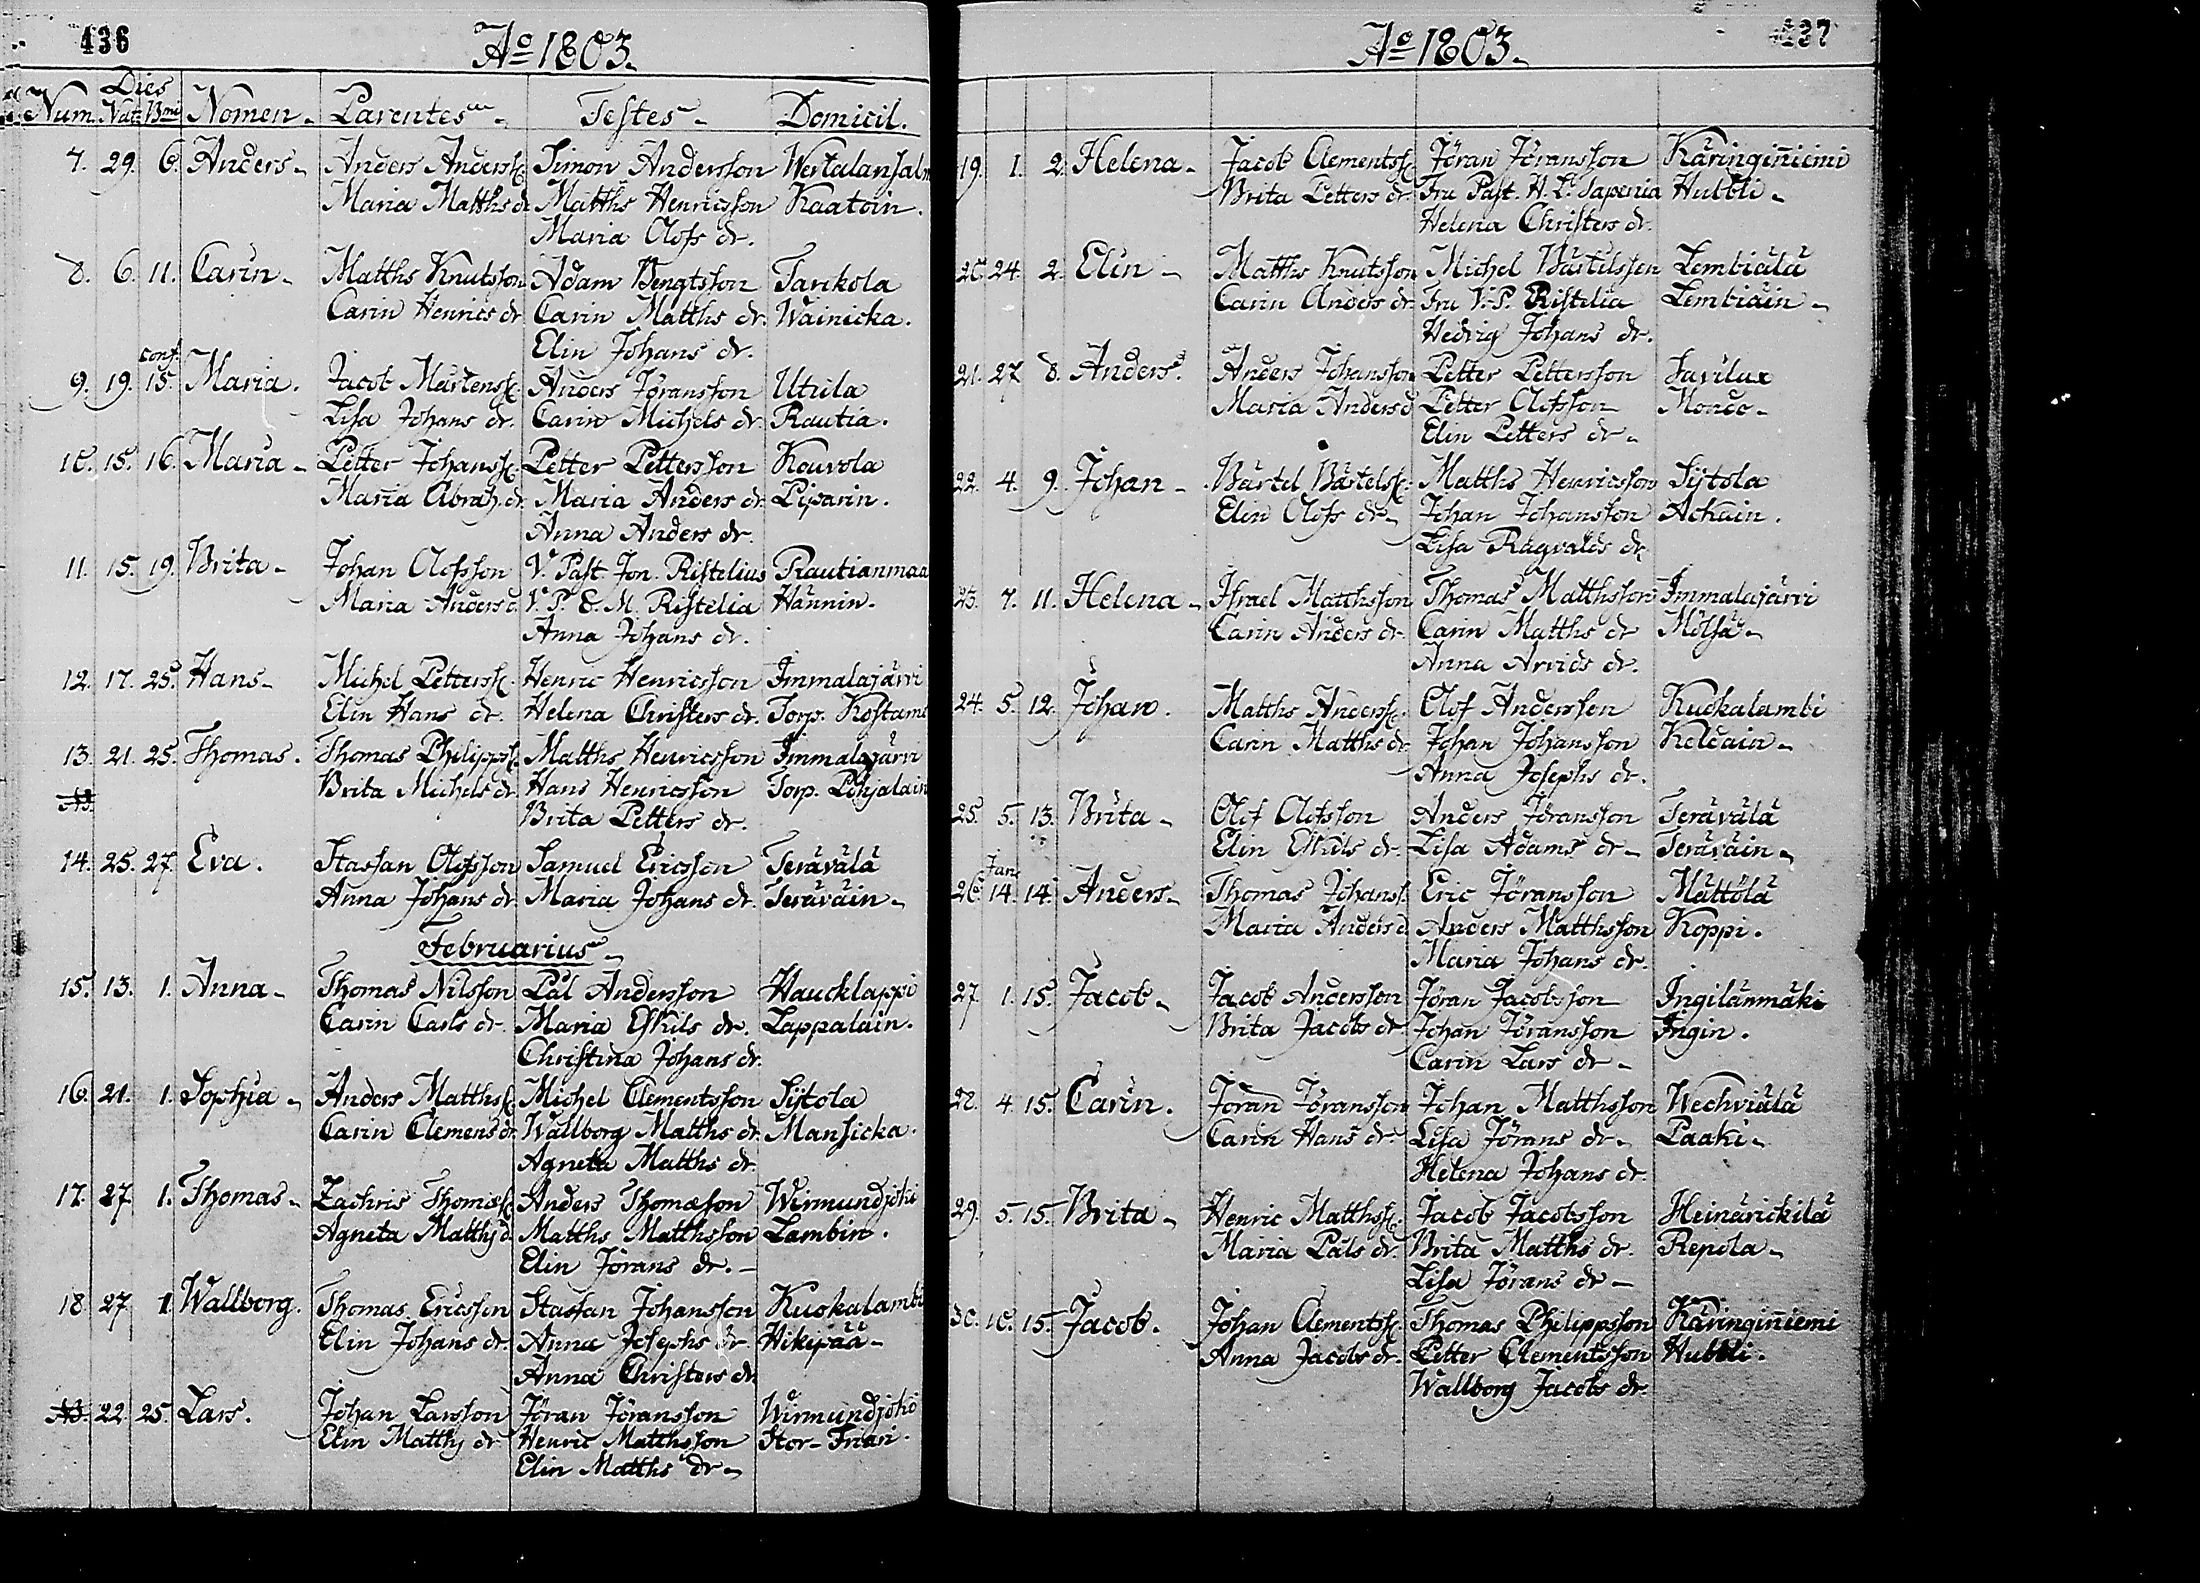 436
Ao 1803.
Dies
Num. Nat. Bmi Nomen. Parentes. Testes. Domicil.
7. 29. 6. Anders. Anders Anderss. Simon Andersson Wertalansalm
Maria Matths dr Matths Henricsson Kaatoin.
Maria Olofs dr.
8. 6. 11. Carin. Matths Knutsson Adam Bengtsson Tarikola
Carin Henrics dr Carin Matths dr. Wainicka.
Elin Johans dr.
conf.
9. 19. 15. Maria. Jacob Mårtenss. Anders Jöransson Utula
Lisa Johans dr. Carin Michels dr Rautia.
10. 15. 16. Maria. Petter Johanss. Petter Pettersson Kouvola
Maria Abrah. dr. Maria Anders dr. Liparin.
Anna Anders dr.
11. 15. 19. Brita. Johan Olofsson V. Past. Jon. Ristelius Rautianmaa
Maria Anders d. V. P. E. M. Ristelia Hännin.
Anna Johans dr.
12. 17. 25. Hans. Michel Petterss. Henric Henricsson Immalajärvi
Elin Hans dr. Helena Christers dr. Torp. Kostami
13. 21. 25. Thomas. Thomas Philipps. Matths Henricsson Immalajärvi
Brita Michels dr. Hans Henricsson Torp. Pohjalain
Brita Petters dr.
14. 25. 27. Eva. Staffan Olofsson Samuel Ericsson Terävälä
Anna Johans dr Maria Johans dr. Teräväin.
Februarius.
15. 13. 1. Anna. Thomas Nilsson Pål Andersson Haucklappi
Carin Carls dr. Maria Eskils dr. Lappalain.
Christina Johans dr.
16. 21. 1. Sophia. Anders Matthss. Michel Clementsson Sijtola
Carin Clemens dr. Wallborg Matths dr. Mansicka.
Agneta Matths dr.
17. 27. 1. Thomas. Zachris Thomæs. Anders Thomæson Wirmundjoki
Agneta Matthj d. Matths Matthsson Lambin.
Elin Jörans dr.
18. 27. 1. Wallborg. Thomas Ericsson Staffan Johansson Kuokalambi
Elin Johans dr. Anna Josephs dr Hikipää.
Anna Christers dr.
22. 25. Lars. Johan Larsson Jöran Jöransson Wirmundjoki
Elin Matthj dr. Henric Matthsson Stor-Frian.
Elin Matths dr.
437
Ao 1803.
19. 1. 2. Helena. Jacob Clementss. Jöran Jöransson Käringiniemi
Brita Petters dr. Fru Past. H. L. Saperia Hubbli.
Helena Christers dr.
20. 24. 2. Elin. Matths Knutsson Michel Bärtelsson Lembiälä
Carin Anders dr. Fru V. P. Ristelia Lembiäin.
Hedvig Johans dr.
21. 27. 8. Anders. Anders Johansson Petter Pettersson Savilux
Maria Anders d. Petter Olofsson
Elin Petters dr.
22. 4. 9. Johan. Bärtel Bärtelss. Matths Henricsson Sijtola
Elin Olofs dr. Johan Johansson Ackain.
Lisa Ragvalds dr.
23. 7. 11. Helena. Israel Matthsson Thomas Matthsson Immalajärvi
Carin Anders dr. Carin Matths dr Mölsä.
Anna Arvids dr.
24. 5. 12. Johan. Matths Anderss. Olof Andersson Kuokalambi
Carin Matths dr. Johan Johansson Keldain.
Anna Josephs dr.
25. 5. 13. Brita. Olof Olofsson Anders Jöransson Terävälä
Elin Eskils dr. Lisa Adams dr. Teräväin.
Jan.
26. 14. 14. Anders. Thomas Johanss. Eric Jöransson Mättölä
Maria Anders d. Anders Matthsson Koppi.
Maria Johans dr.
27. 1. 15. Jacob. Jacob Andersson Jöran Jacobsson Ingilänmäki
Brita Jacobs dr. Johan Jöransson Ingin.
Carin Lars dr.
28. 4. 15. Carin. Jöran Jöransson Johan Matthsson Wechviälä
Carin Hans dr. Lisa Jörans dr. Paaki.
Helena Johans dr.
29. 5. 15. Brita. Henric Matthss. Jacob Jacobsson Heinärickilä
Maria Påls dr. Brita Matths dr. Repola.
Lisa Jörans dr.
30. 10. 15. Jacob. Johan Clementss. Thomas Philippsson Käringiniemi
Anna Jacobs dr. Petter Clementsson Hubbli.
Wallborg Jacobs dr.